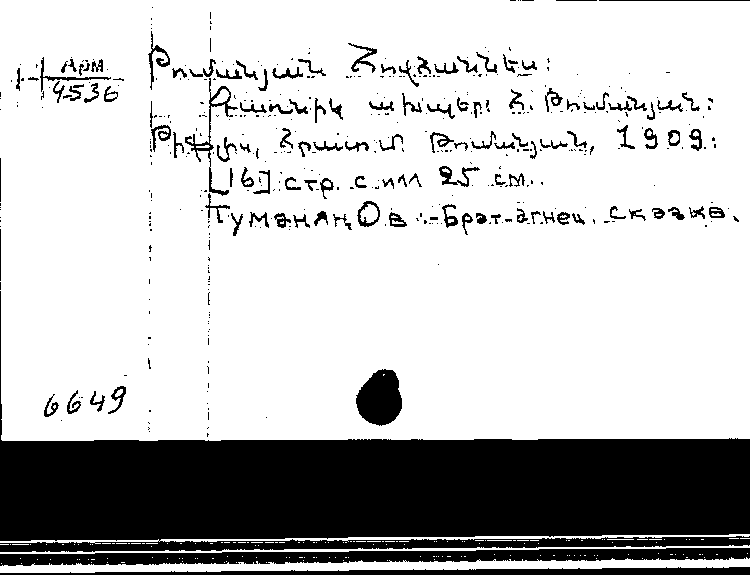 Арм
4536
Թումանյան Հովհաննես:
Գառնիկ ախպեր: Հ. Թումանյան:
Թիֆլիս, Հրատ. Թումանյան, 1909:
[16] стр. с илл 25 см.
Туманян, О. -Брат-агнец. сказка.
6649